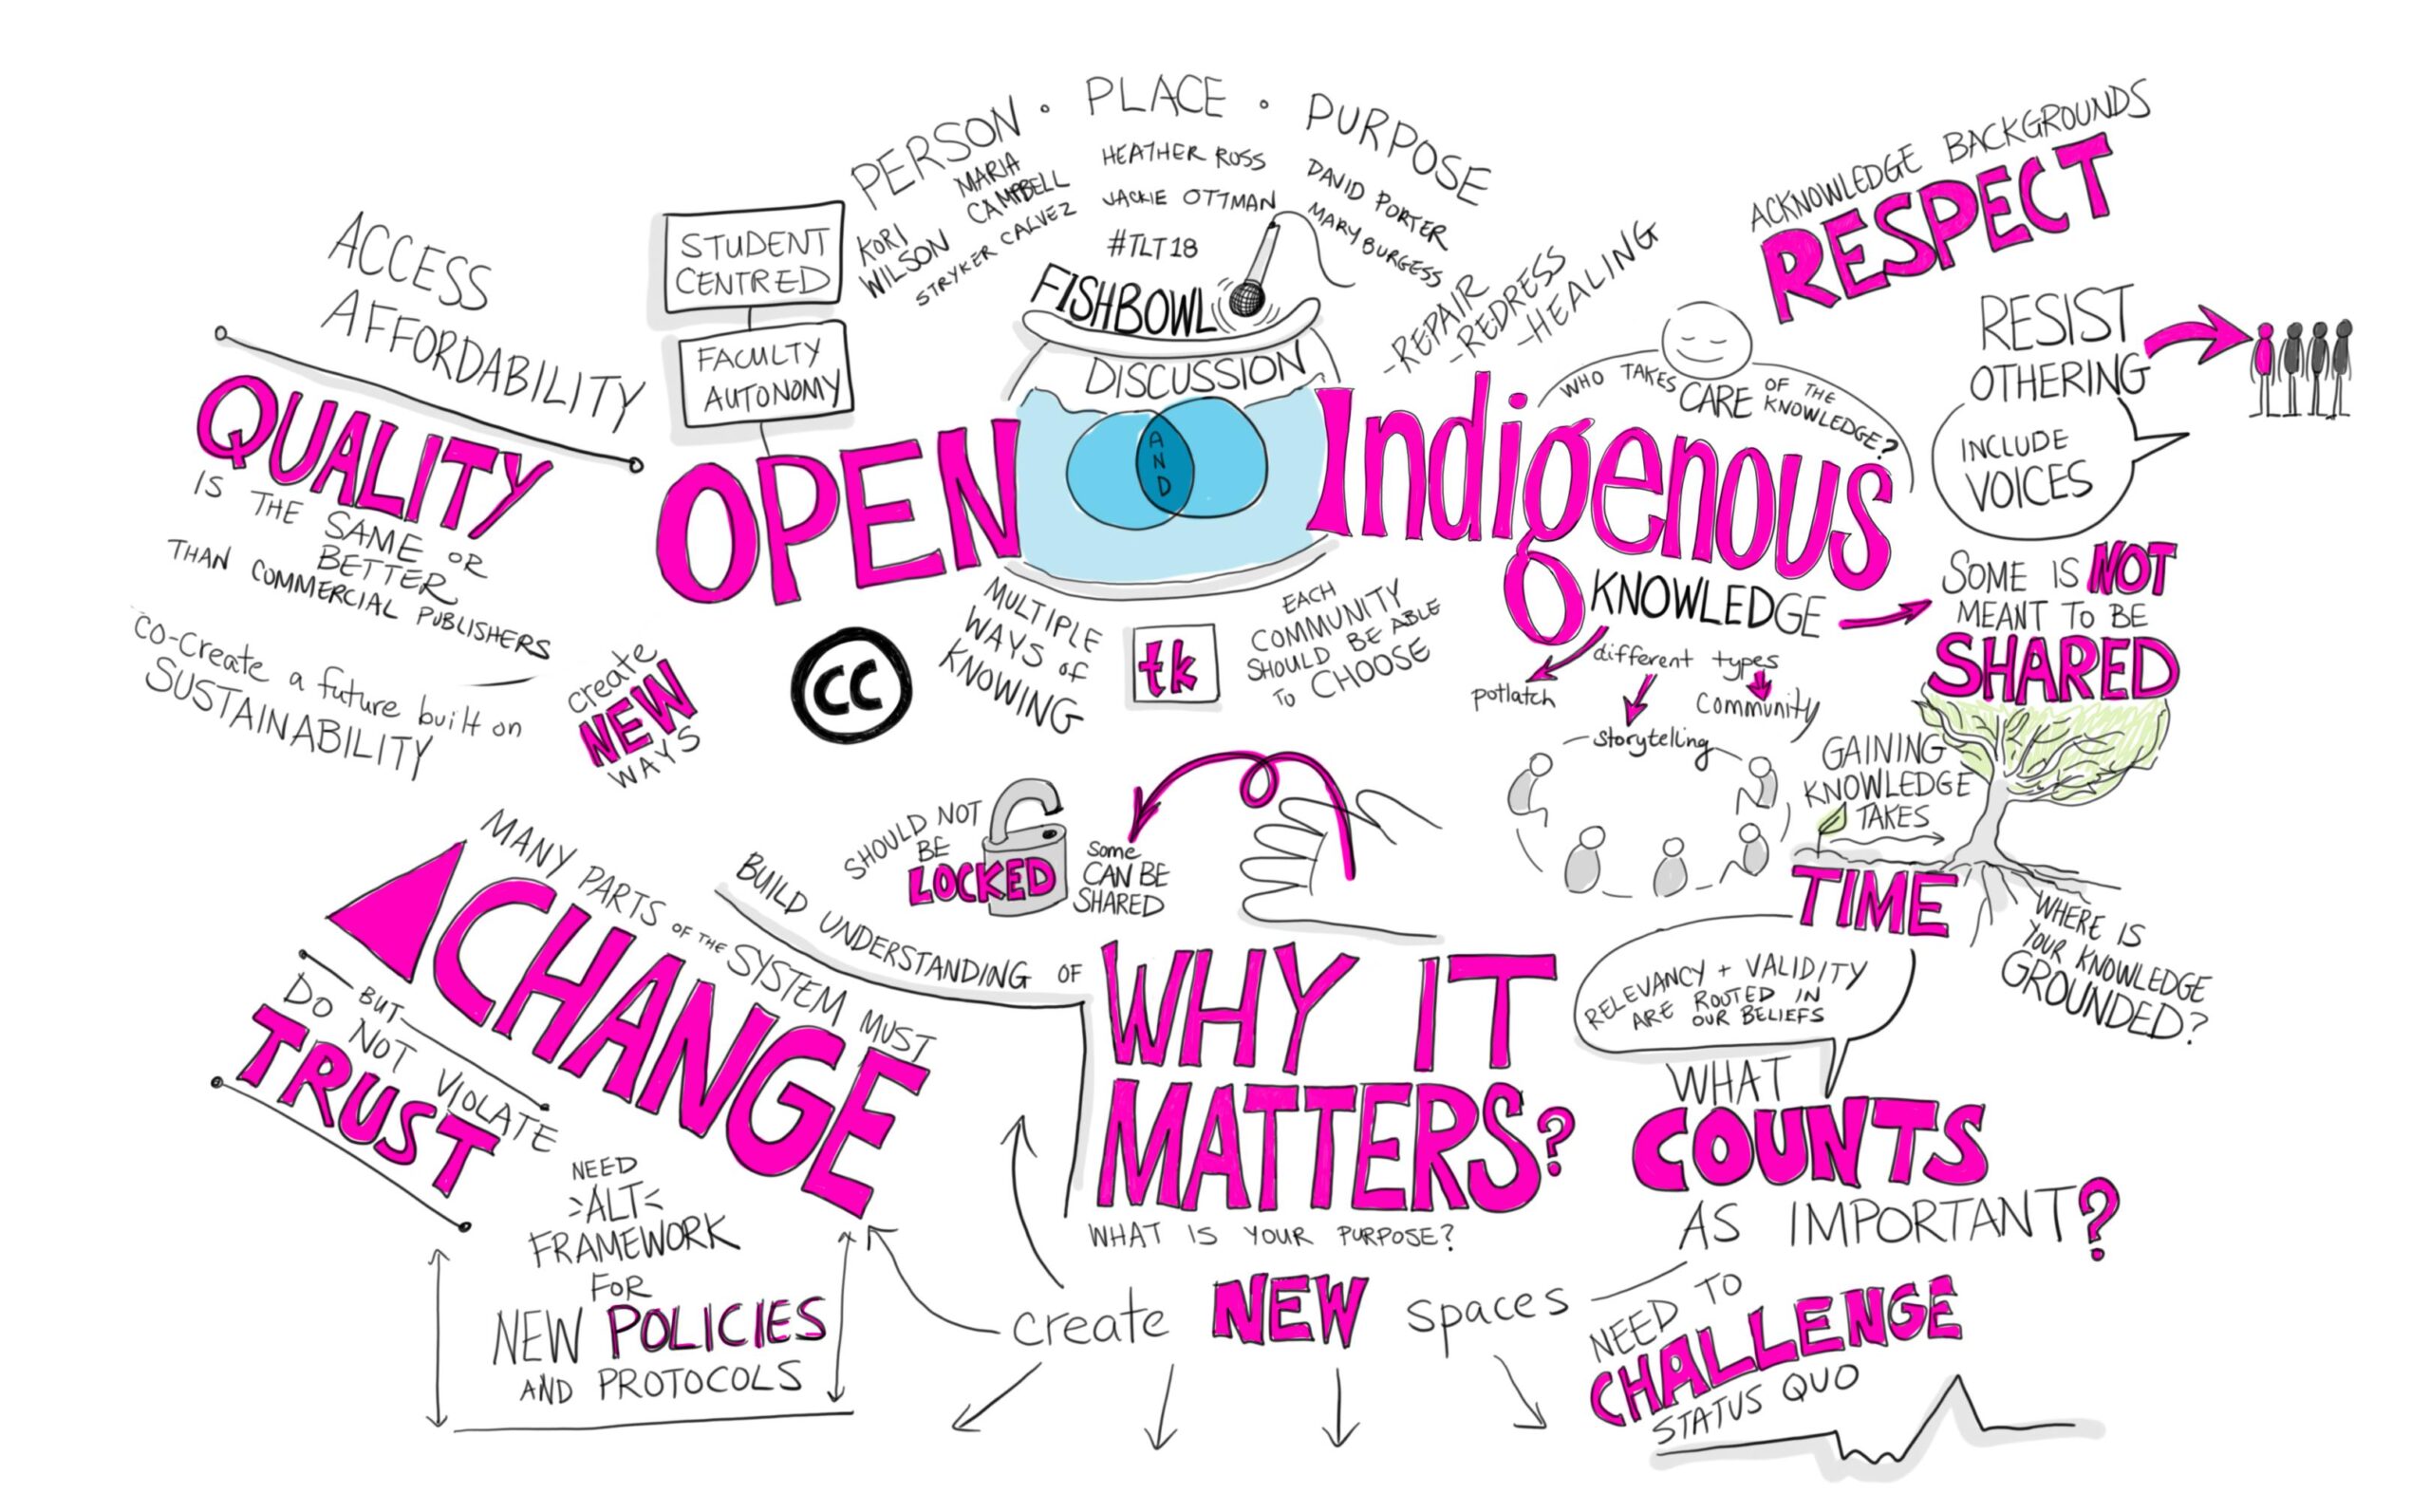 PERSON · PLACE · PURPOSE
KORI
WILSON
MARIA
CAMPBELL
STRYKER CALVEZ
HEATHER ROSS
JACKIE OTTMAN
#TLT18
DAVID PORTER
MARY BURGESS
FISHBOWL
DISCUSSION
AND
OPEN
Indigenous
KNOWLEDGE
STUDENT
CENTRED
FACULTY
AUTONOMY
ACCESS
AFFORDABILITY
QUALITY
IS THE SAME OR
BETTER
THAN COMMERCIAL PUBLISHERS
CO-Create a future built on
SUSTAINABILITY
create
NEW
WAYS
CC
MULTIPLE
WAYS of
KNOWING
tk
EACH
COMMUNITY
SHOULD BE ABLE
TO CHOOSE
-REPAIR
-REDRESS
-HEALING
WHO TAKES CARE OF THE KNOWLEDGE?
ACKNOWLEDGE BACKGROUNDS
RESPECT
RESIST
OTHERING
INCLUDE
VOICES
SOME IS NOT
MEANT TO BE
SHARED
different types
potlatch
storytelling
Community
GAINING
KNOWLEDGE
TAKES
TIME
WHERE IS
YOUR KNOWLEDGE
GROUNDED?
SHOULD NOT
BE
LOCKED
Some
CAN BE
SHARED
MANY PARTS OF THE SYSTEM MUST
CHANGE
BUT
DO NOT VIOLATE
TRUST
NEED
ALT
FRAMEWORK
FOR
NEW POLICIES
AND PROTOCOLS
BUILD UNDERSTANDING OF
WHY IT
MATTERS?
WHAT IS YOUR PURPOSE?
create NEW spaces
RELEVANCY + VALIDITY
ARE ROUTED IN
OUR BELIEFS
WHAT
COUNTS
AS IMPORTANT?
NEED TO
CHALLENGE
STATUS QUO